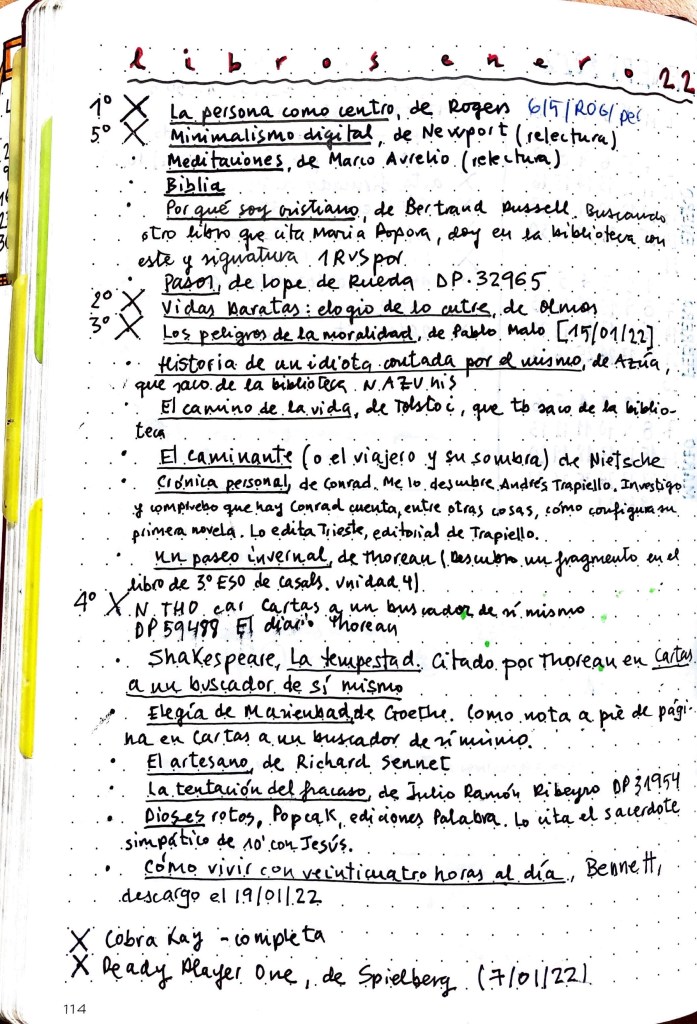 libros enero 22
1º X La persona como centro, de Rogers 615/ROG/per
5º X Minimalismo digital, de Newport (relectura)
· Meditaciones, de Marco Aurelio (relectura)
· Biblia
· Por qué soy cristiano, de Bertrand Russell. Buscando
otro libro que cita Maria Popova, doy en la biblioteca con
este y signatura 1 RUS por.
· Pasos, de Lope de Rueda DP.32965
2º X Vidas baratas: elogio de lo cutre, de Olmos
3º X Los peligros de la moralidad, de Pablo Malo [15/01/22]
· Historia de un idiota contada por el mismo, de Azúa,
que saco de la biblioteca. N.AZU his
· El camino de la vida, de Tolstoi, que tb saco de la biblio-
teca
· El caminante (o el viajero y su sombra) de Nietsche
· Crónica personal, de Conrad. Me lo descubre Andrés Trapiello. Investigo
y compruebo que hay Conrad cuenta, entre otras cosas, cómo configura su
primera novela. Lo edita Trieste, editorial de Trapiello.
· Un paseo invernal, de Thoreau (Descubro un fragmento en el
libro de 3º ESO de Casals. Unidad 4)
4º X N. THO car Cartas a un buscador de sí mismo
DP 59488 El diario Thoreau
· Shakespeare, La tempestad. Citado por Thoreau en Cartas
a un buscador de sí mismo
· Elegía de Marienbad, de Goethe. Como nota a pie de pági-
na en Cartas a un buscador de sí mismo.
· El artesano, de Richard Sennet
· La tentación del fracaso, de Julio Ramón Ribeyro DP 31954
· Dioses rotos, Popcak, ediciones Palabra. Lo cita el sacerdote
simpático de 10' con Jesús.
· Cómo vivir con veinticuatro horas al día, Bennett,
descargo el 19/01/22
X Cobra Kay - completa
X Ready Player One, de Spielberg (7/01/22)
114